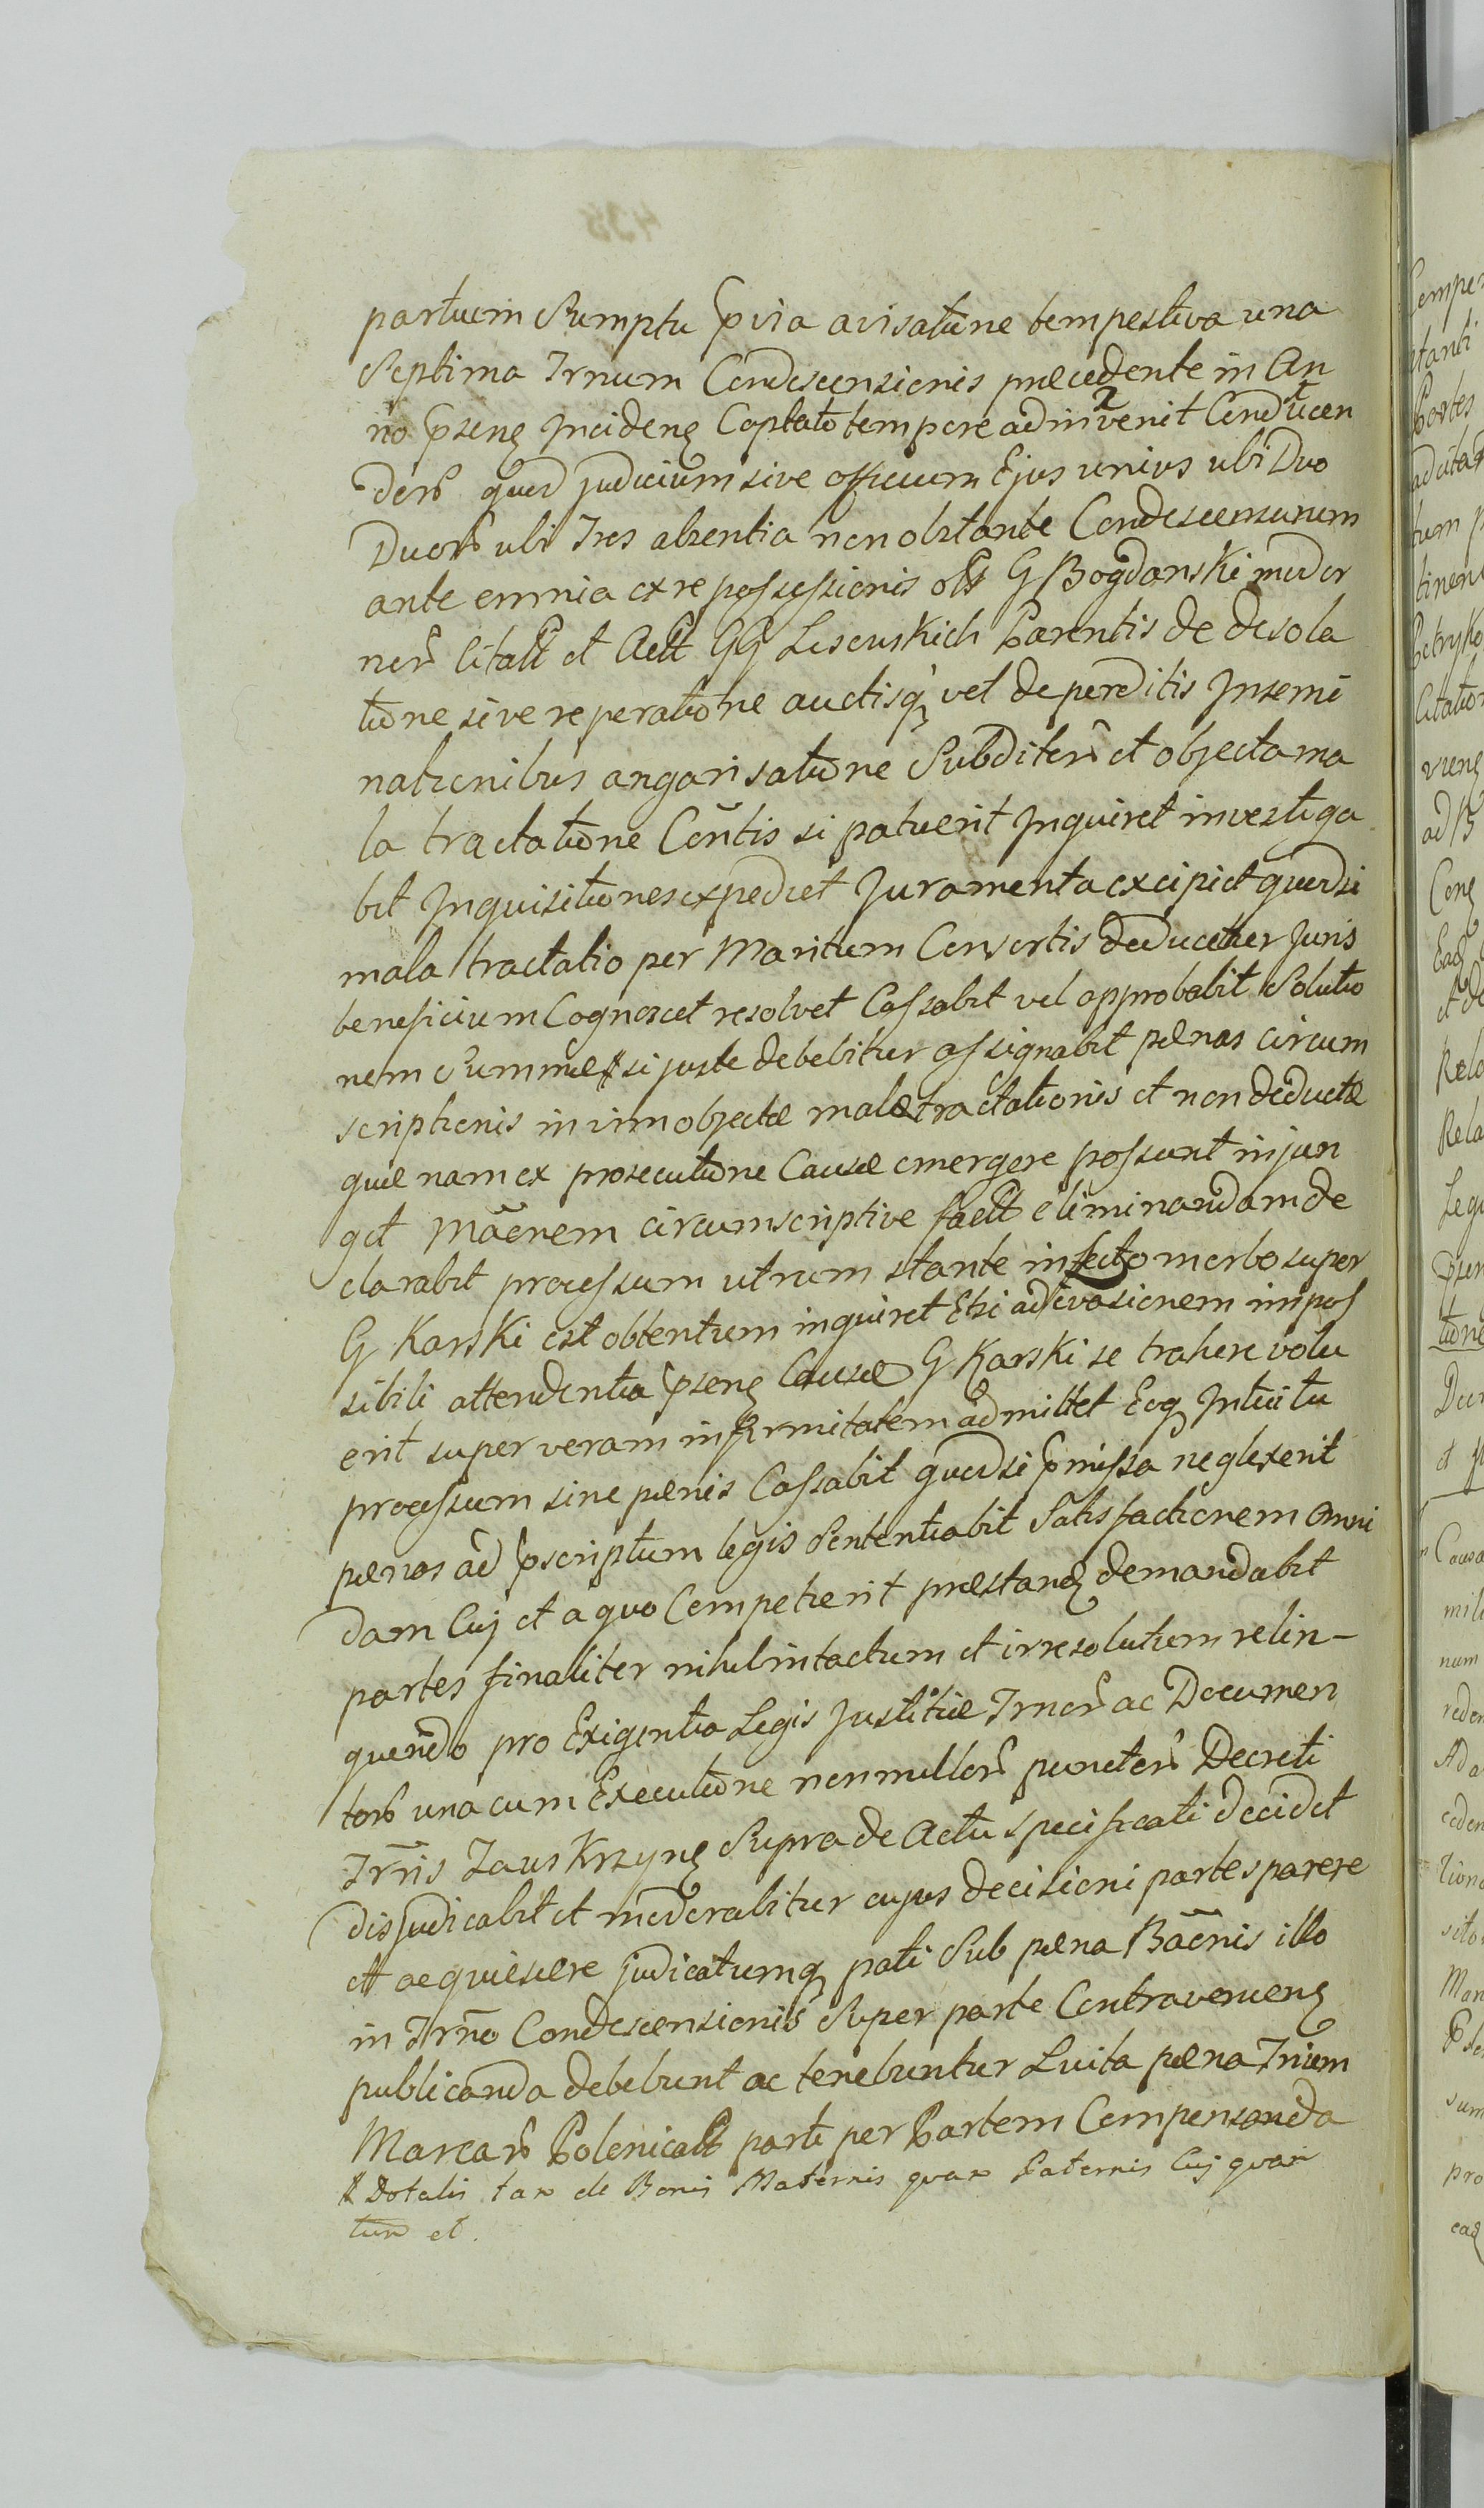 partium Sumptu pvia avisatione tempestiva una
Septima Trnum Condescensionis præcedente in An
no psenę Incidenę Captato tempore adinvenit Conducen
dorͦ quod judicium sive officium Ejus unius ubi Duo
Duorͦ ubi Tres absentia non obstante Condescensurum
ante omnia ex re possessionis olt G Bogdanski moder
norͦ Citatt et Actt GG Lisowskich Parentis de desola
tione sive reperatione auctisq vel deperditis Insemi
nationibus angarisatione Subditorͦ et objecta ma
la tractatione Cõntis si patuerit Inquiret investiga
bit Inquisitiones expediet Juramenta excipiet quodsi
mala tractatio per Maritum Consortis deducetur Juris
beneficium Cognoscet resolvet Cassabit vel approbabit Solutio
nem Summæ si juste debebitur assignabit pænas circum
scriptionis in vim objectæ malætractationis et non deductæ
quæ nam ex prosecutione Causæ emergere possunt injun
get Mãõnem circumscriptive factt eliminandam de
clarabit processum utrum stante infecto morbo super
G Karski est obtentum inquiret Etsi ad evasionem impos
sibili attendentia psenę Causæ G Karski se trahere volu
erit super veram infirmitatem admittet Eoq Intuitu
processum sine pænis Cassabit quodsi pmissa neglexerit
pænas ad pscriptum legis Sententiabit Satisfactionem omni
dam Cuj et a quo Competierit præstanę demandabit
partes finaliter nihil intactum et irresolutum relin-
quendo pro Exigentia Legis Justitiæ Trnorͦ ac Documen
torͦ una cum Executione nonnullorͦ punctorͦ Decreti
Trñis Zauskrzynę Supra de Actu specificati decidet
disjudicabit et moderabitur cujus decisioni partes parere
et acquiescere judicatumq pati Sub pæna Bãõnis illo
in Trño Condescensionis Super parte Contravenienę
publicanda debebunt ac tenebuntur Luita pæna Trium
Marcarͦ Polonicalt parti per Partem Compensanda
Dotalis tam de Bonis Maternis quam Paternis Cuj quan
tum et.